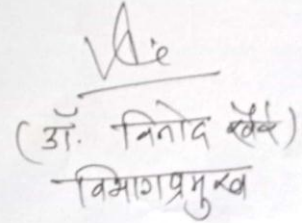 (डॉ. विनोद खैरे)
विभागप्रमुख